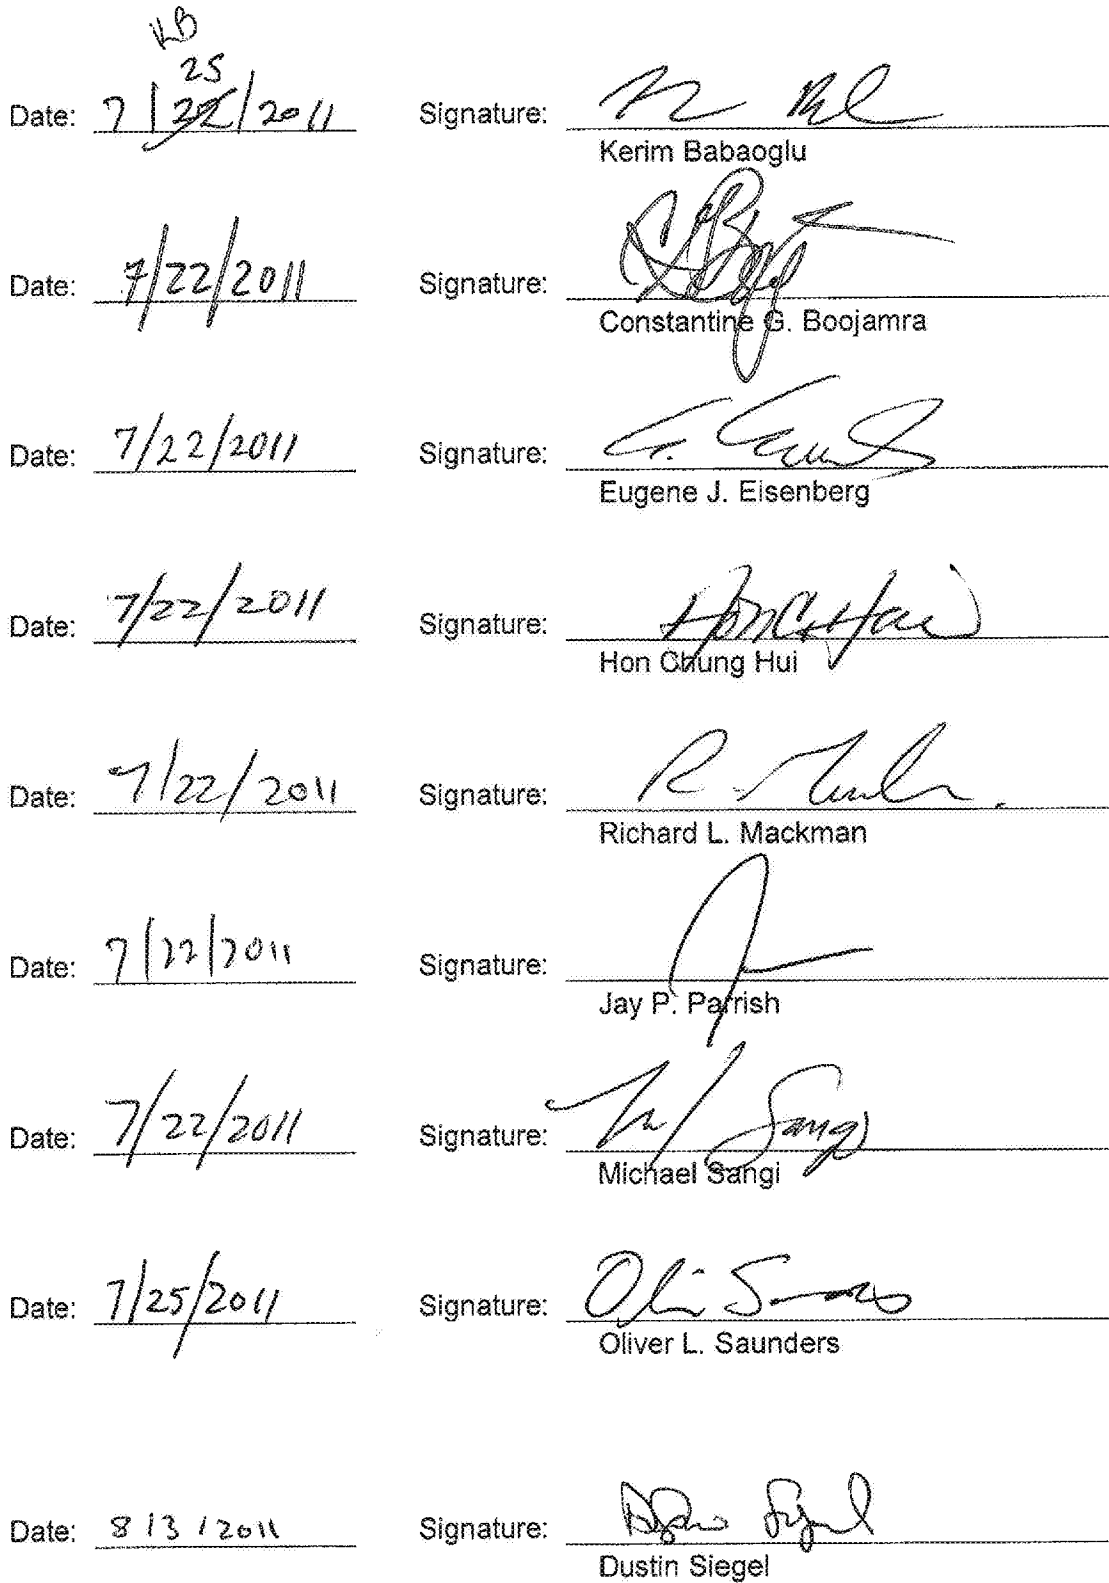 KB
25
Date: 7/22/2011 Signature:
Kerim Babaoglu
Date: 7/22/2011 Signature:
Constantine G. Boojamra
Date: 7/22/2011 Signature:
Eugene J. Eisenberg
Date: 7/22/2011 Signature:
Hon Chung Hui
Date: 7/22/2011 Signature:
Richard L. Mackman
Date: 7/22/2011 Signature:
Jay P. Parrish
Date: 7/22/2011 Signature: M Sangi
Michael Sangi
Date: 7/25/2011 Signature:
Oliver L. Saunders
Date: 8/3/2011 Signature:
Dustin Siegel